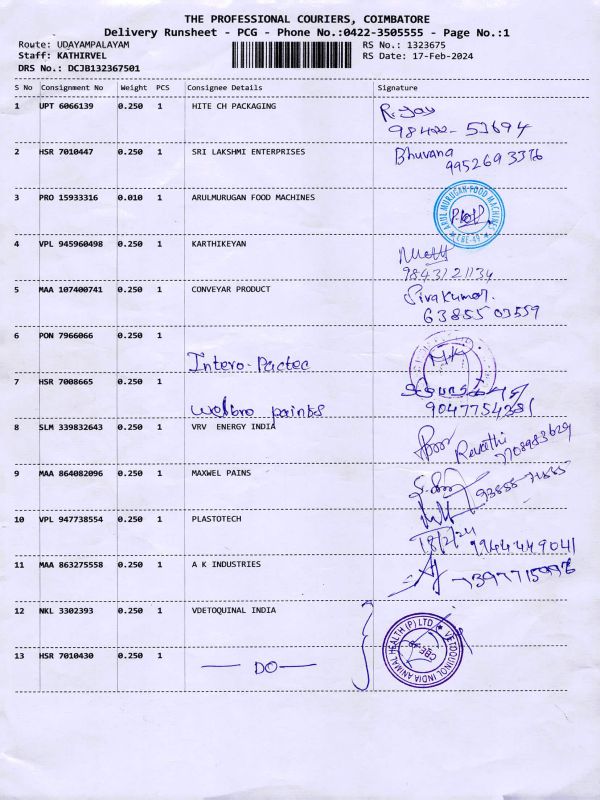 THE PROFESSIONAL COURIERS, COIMBATORE
Delivery Runsheet - PCG - Phone No.:0422-3505555 - Page No.:1
Route: UDAYAMPALAYAM RS No.: 1323675
Staff: KATHIRVEL RS Date: 17-Feb-2024
DRS No.: DCJB132367501
S No Consignment No Weight PCS Consignee Details Signature
1 UPT 6066139 0.250 1 HITE CH PACKAGING
2 HSR 7010447 0.250 1 SRI LAKSHMI ENTERPRISES Bhuvana
9952693376
3 PRO 15933316 0.010 1 ARULMURUGAN FOOD MACHINES
ARUL MURUGAN FOOD MACHINES
CBE-49
4 VPL 945960498 0.250 1 KARTHIKEYAN
9843121134
5 MAA 107400741 0.250 1 CONVEYAR PRODUCT Sivakumar.
6385503559
6 PON 7966066 0.250 1
Intero-Pactec
7 HSR 7008665 0.250 1
Welbro paints 9047754381
8 SLM 339832643 0.250 1 VRV ENERGY INDIA Revathi
7708983629
9 MAA 864082096 0.250 1 MAXWEL PAINS
10 VPL 947738554 0.250 1 PLASTOTECH
18/2/24 9944449041
11 MAA 863275558 0.250 1 A K INDUSTRIES
12 NKL 3302393 0.250 1 VDETOQUINAL INDIA
VETOQUINOL INDIA ANIMAL HEALTH (P) LTD
CBE
13 HSR 7010430 0.250 1 — DO —